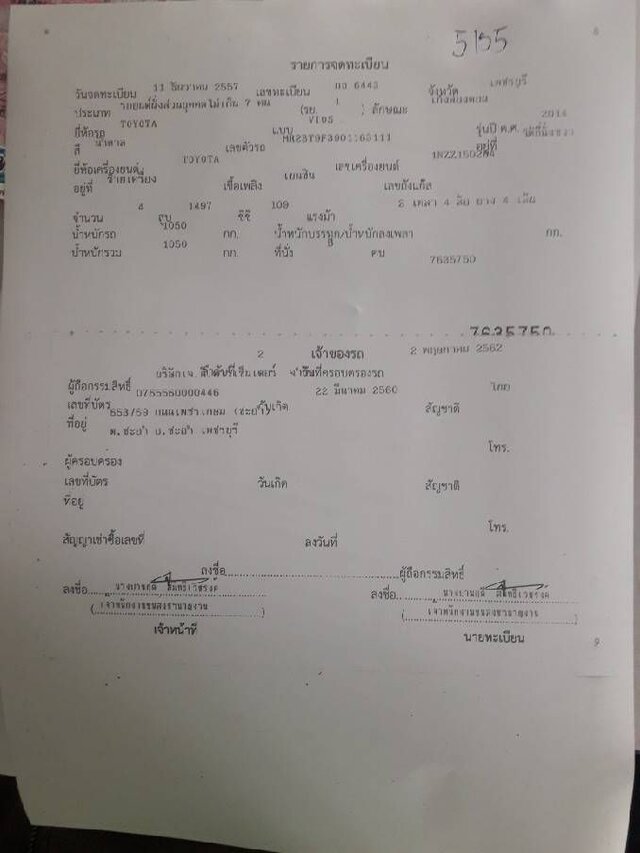 5155
8
รายการจดทะเบียน
วันจดทะเบียน 11 ธันวาคม 2557 เลขทะเบียน 6443 จังหวัด เพชรบุรี
ประเภท รถยนต์นั่งส่วนบุคคลไม่เกิน 7 คน (รย. 1 ) ลักษณะ เก๋งสองตอน
ยี่ห้อรถ TOYOTA แบบ VIOS รุ่นปี ค.ศ. 2014
สี น้ำตาล เลขตัวรถ อยู่ที่
ยี่ห้อเครื่องยนต์ TOYOTA เลขเครื่องยนต์
อยู่ที่ เชื้อเพลิง เบนซิน เลขถังแก๊ส
จำนวน 4 สูบ 1497 ซีซี 109 แรงม้า 2 เพลา 4 ล้อ ยาง 4 เส้น
น้ำหนักรถ 1050 กก. น้ำหนักบรรทุก/น้ำหนักลงเพลา กก.
น้ำหนักรวม 1050 กก. ที่นั่ง คน 7635750
7635750
2 เจ้าของรถ 2 พฤษภาคม 2562
วันที่ครอบครองรถ
ผู้ถือกรรมสิทธิ์
เลขที่บัตร 0765560000446 วันเกิด 22 มีนาคม 2560 สัญชาติ ไทย
ที่อยู่ 853/59 ถนนเพชรเกษม
ต.ชะอำ อ.ชะอำ เพชรบุรี
โทร.
ผู้ครอบครอง
เลขที่บัตร วันเกิด สัญชาติ
ที่อยู่
โทร.
สัญญาเช่าซื้อเลขที่ ลงวันที่
ลงชื่อ ผู้ถือกรรมสิทธิ์
ลงชื่อ ลงชื่อ
(เจ้าพนักงานขนส่งชำนาญงาน) (เจ้าพนักงานขนส่งชำนาญงาน)
เจ้าหน้าที่ นายทะเบียน
9